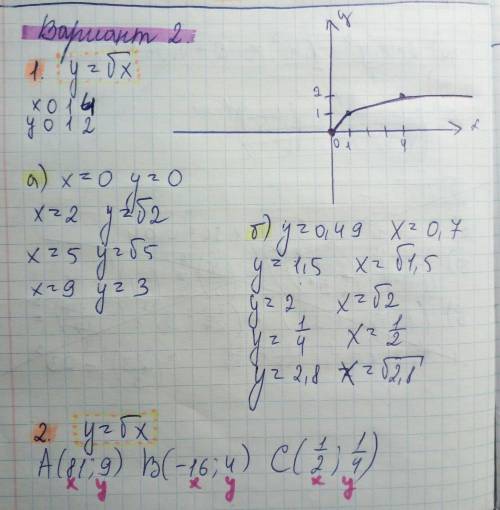 Вариант 2.
1. y = √x
x 0 1 4
y 0 1 2
y
2
1
0 1 4 x
а) x = 0 y = 0
x = 2 y = √2
x = 5 y = √5
x = 9 y = 3
б) y = 0,49 x = 0,7
y = 1,5 x = √1,5
y = 2 x = √2
y = 1/4 x = 1/2
y = 2,8 x = √2,8
2. y = √x
A(81; 9) B(-16; 4) C(1/2; 1/4)
x y x y x y